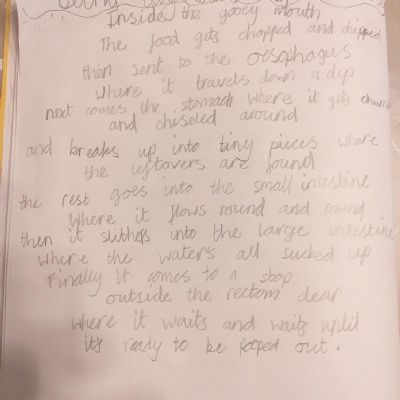 Inside the gooey mouth
The food gets chopped and chipped
then sent to the oesophagus
Where it travels down a dip
next comes the stomach where it gets
and chiseled around
and breaks up into tiny pieces where
the leftovers are found
the rest goes into the small intestine
Where it flows round and round
then it slithers into the large intestine
where the waters all sucked up
Finally it comes to a stop
outside the rectom dear
where it waits and waits until
it's ready to be pooped out.